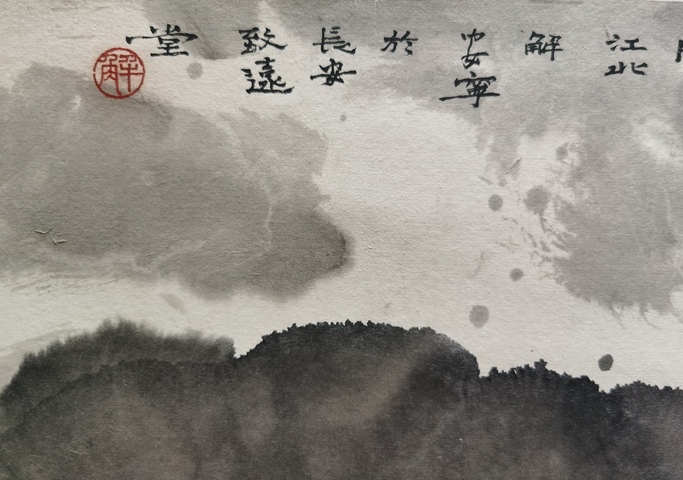 江北
解
安寧
於
長安
致遠
堂
解